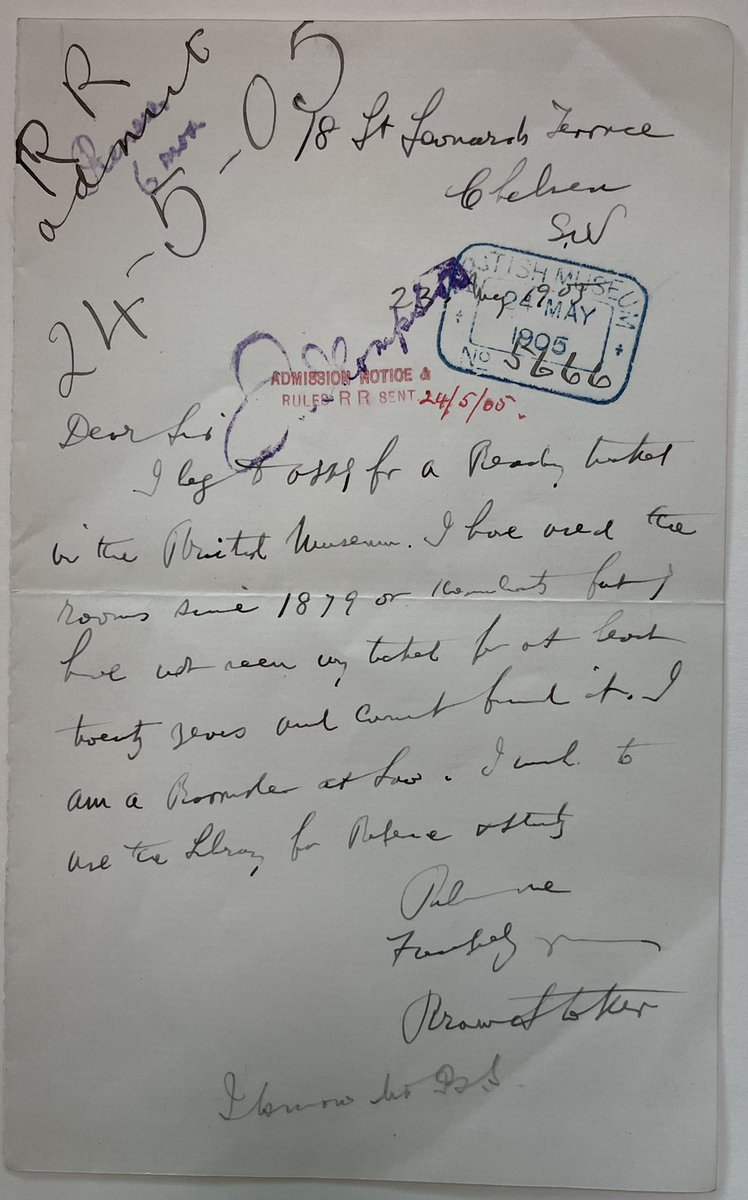 R R
admit
6 mos
24-5-05
18 St Leonards Terrace
Chelsea
S.W
23 May 1905
BRITISH MUSEUM
24 MAY
1905
No 5666
ADMISSION NOTICE &
RULES R R SENT 24/5/05.
Dear Sir
I beg to apply for a Reading ticket
in the British Museum. I have used the
rooms since 1879 or but I
have not seen my ticket for at least
twenty years and cannot find it. I
am a Barrister at Law. I wish to
use the Library for Reference & study
Believe me
Faithfully yours
Bram Stoker
I know Mr B.S.